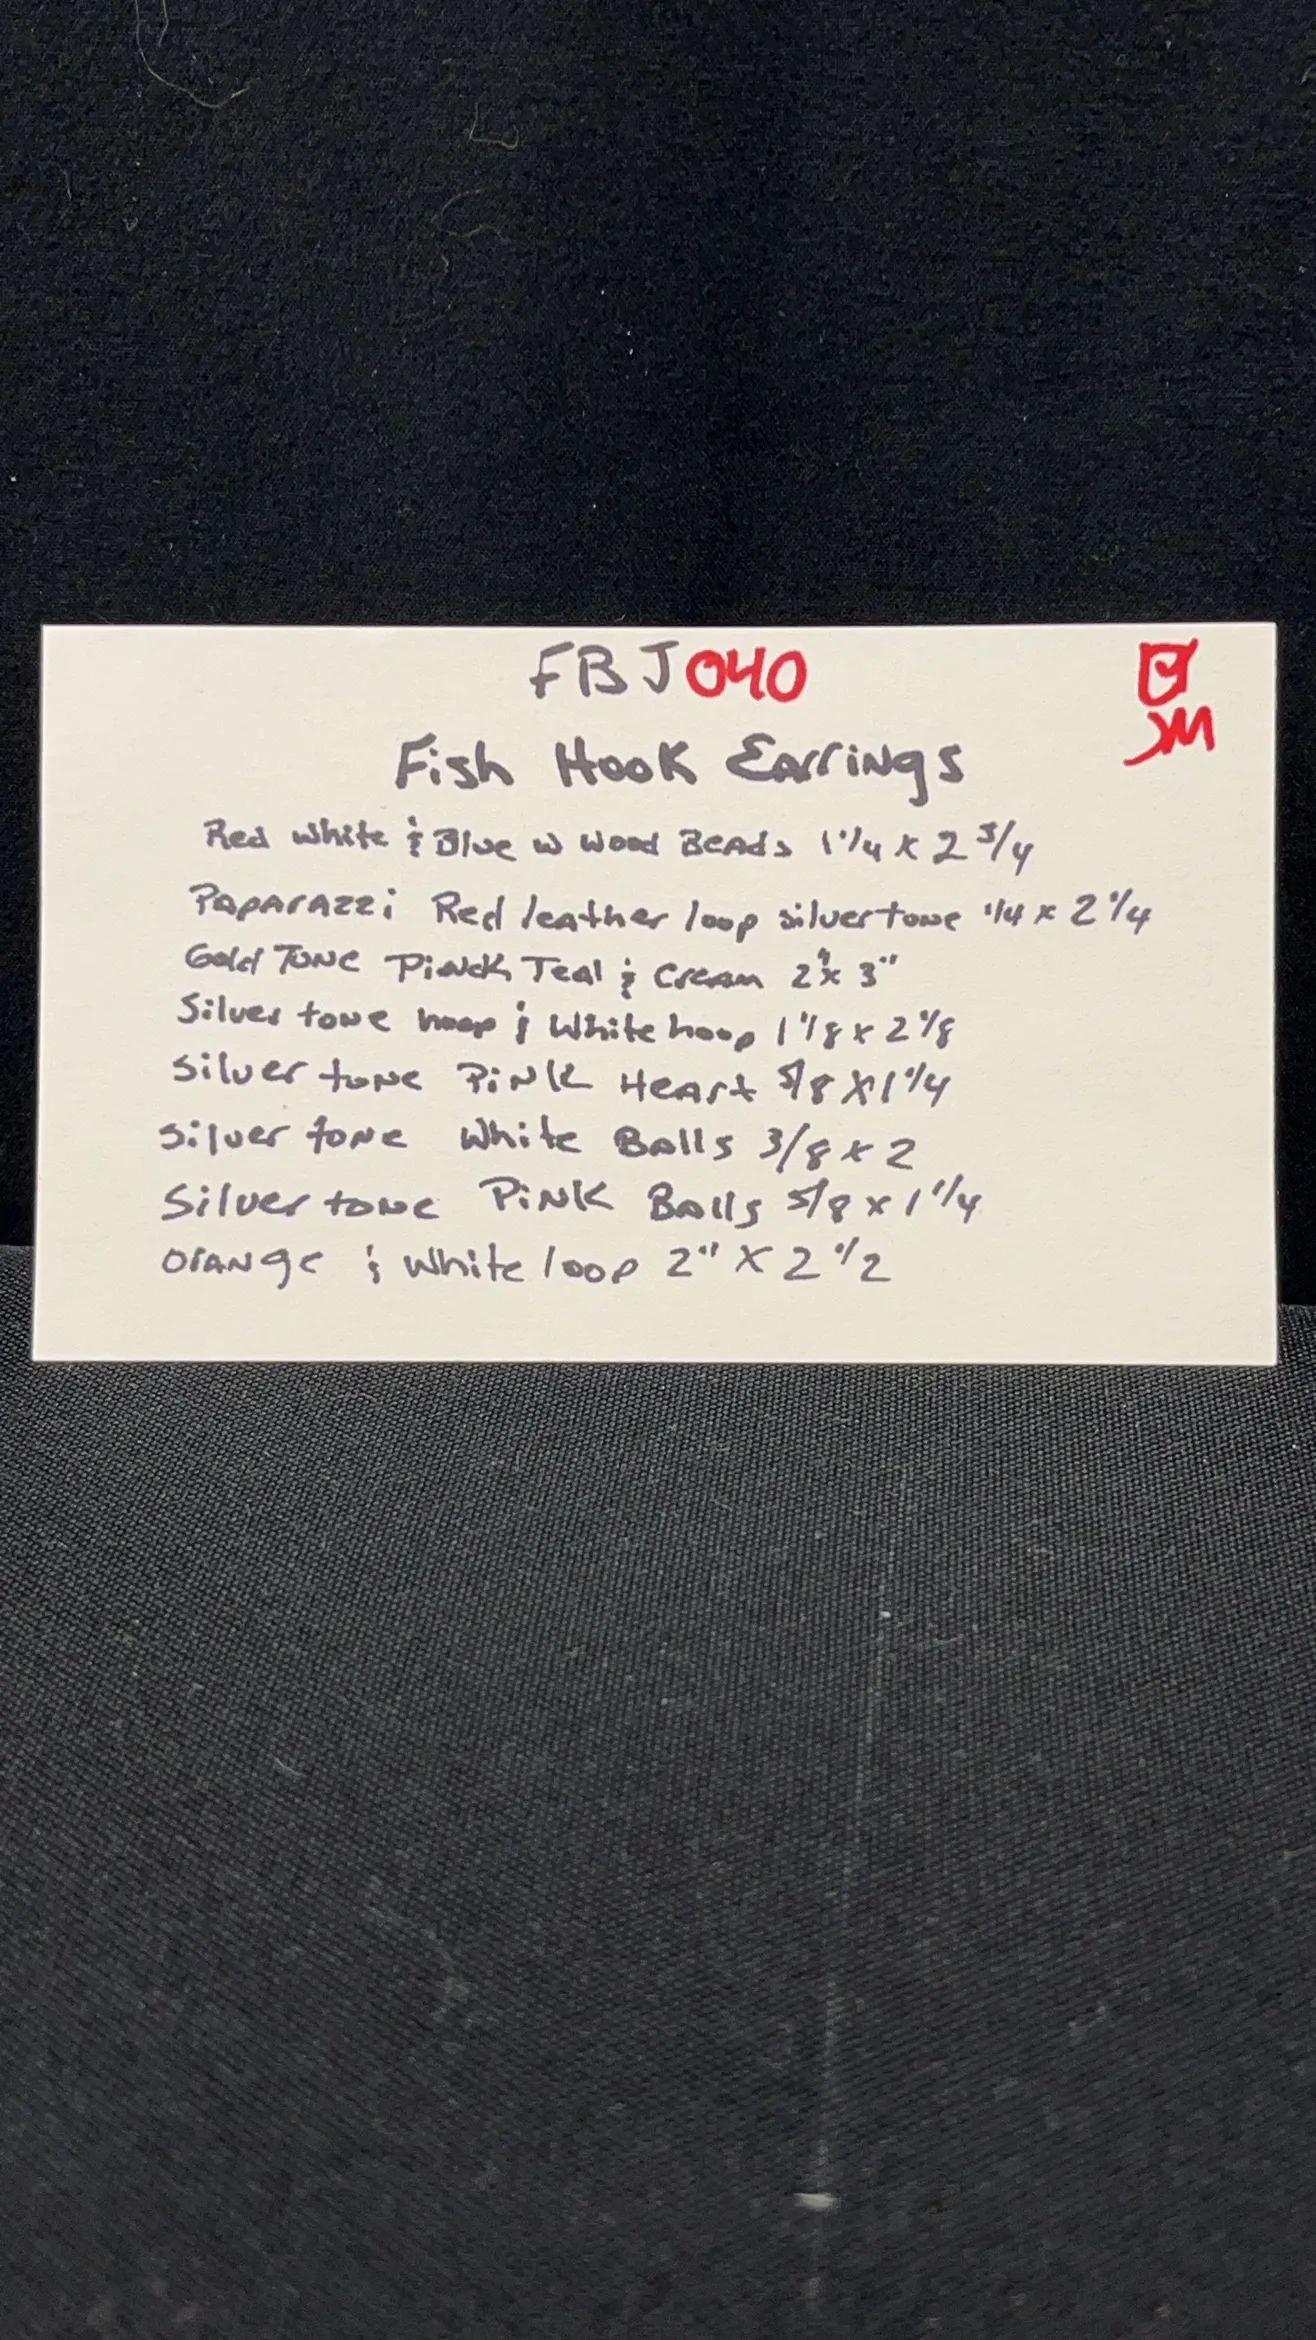 FBJ040
JM
Fish Hook Earrings
Red White & Blue w Wood Beads 1 1/4 x 2 3/4
Paparazzi Red leather loop silvertone 1/4 x 2 1/4
Gold Tone Pinck Teal & Cream 2" x 3"
Silver tone hoop & White hoop 1 1/8 x 2 1/8
Silver tone Pink Heart 5/8 x 1 1/4
Silver tone White Balls 3/8 x 2
Silver tone Pink Balls 5/8 x 1 1/4
Orange & White loop 2" x 2 1/2